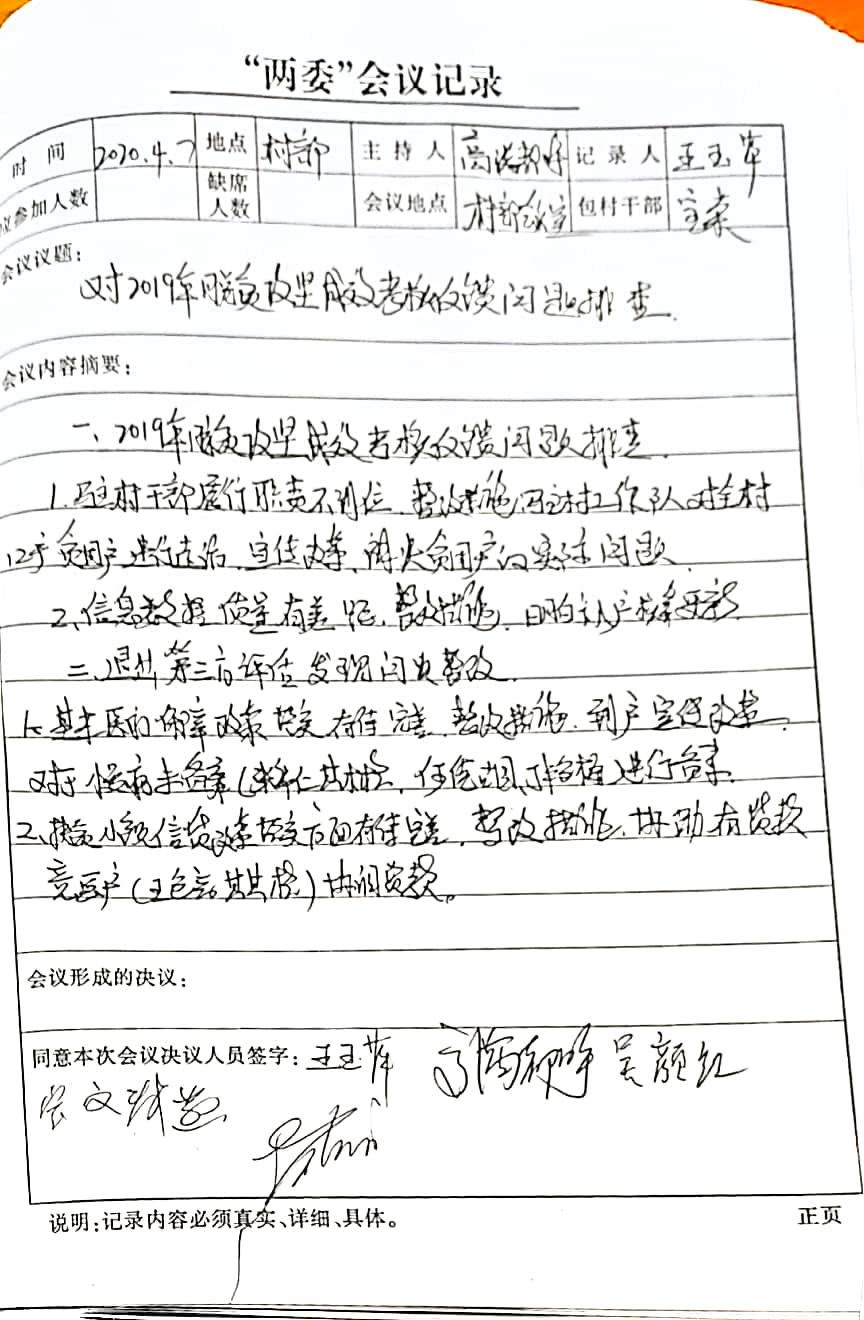 “两委”会议记录
时间 2020.4.7 地点 村部 主持人 记录人 王玉苹
议参加人数 缺席人数 会议地点 村部会议室 包村干部
会议议题:
对2019年脱贫攻坚成效考核反馈问题排查.
会议内容摘要:
一、2019年脱贫攻坚成效考核反馈问题排查.
1.驻村干部履行职责不到位.整改措施:驻村工作队对全村
12户贫困户进行走访,宣传政策,解决贫困户的实际问题.
2、信息数据质量有差距.整改措施.入户核实更新.
二、退出第三方评估发现问题整改.
1.基本医疗保障政策落实存在完差.整改措施.到户宣传政策.
对于慢病未备案进行备案.
2、扶贫小额信贷政策落实方面存在完差.整改措施.协助有贷款
意愿户协调贷款。
会议形成的决议:
同意本次会议决议人员签字:王玉苹 吴颜红
说明:记录内容必须真实、详细、具体。 正页